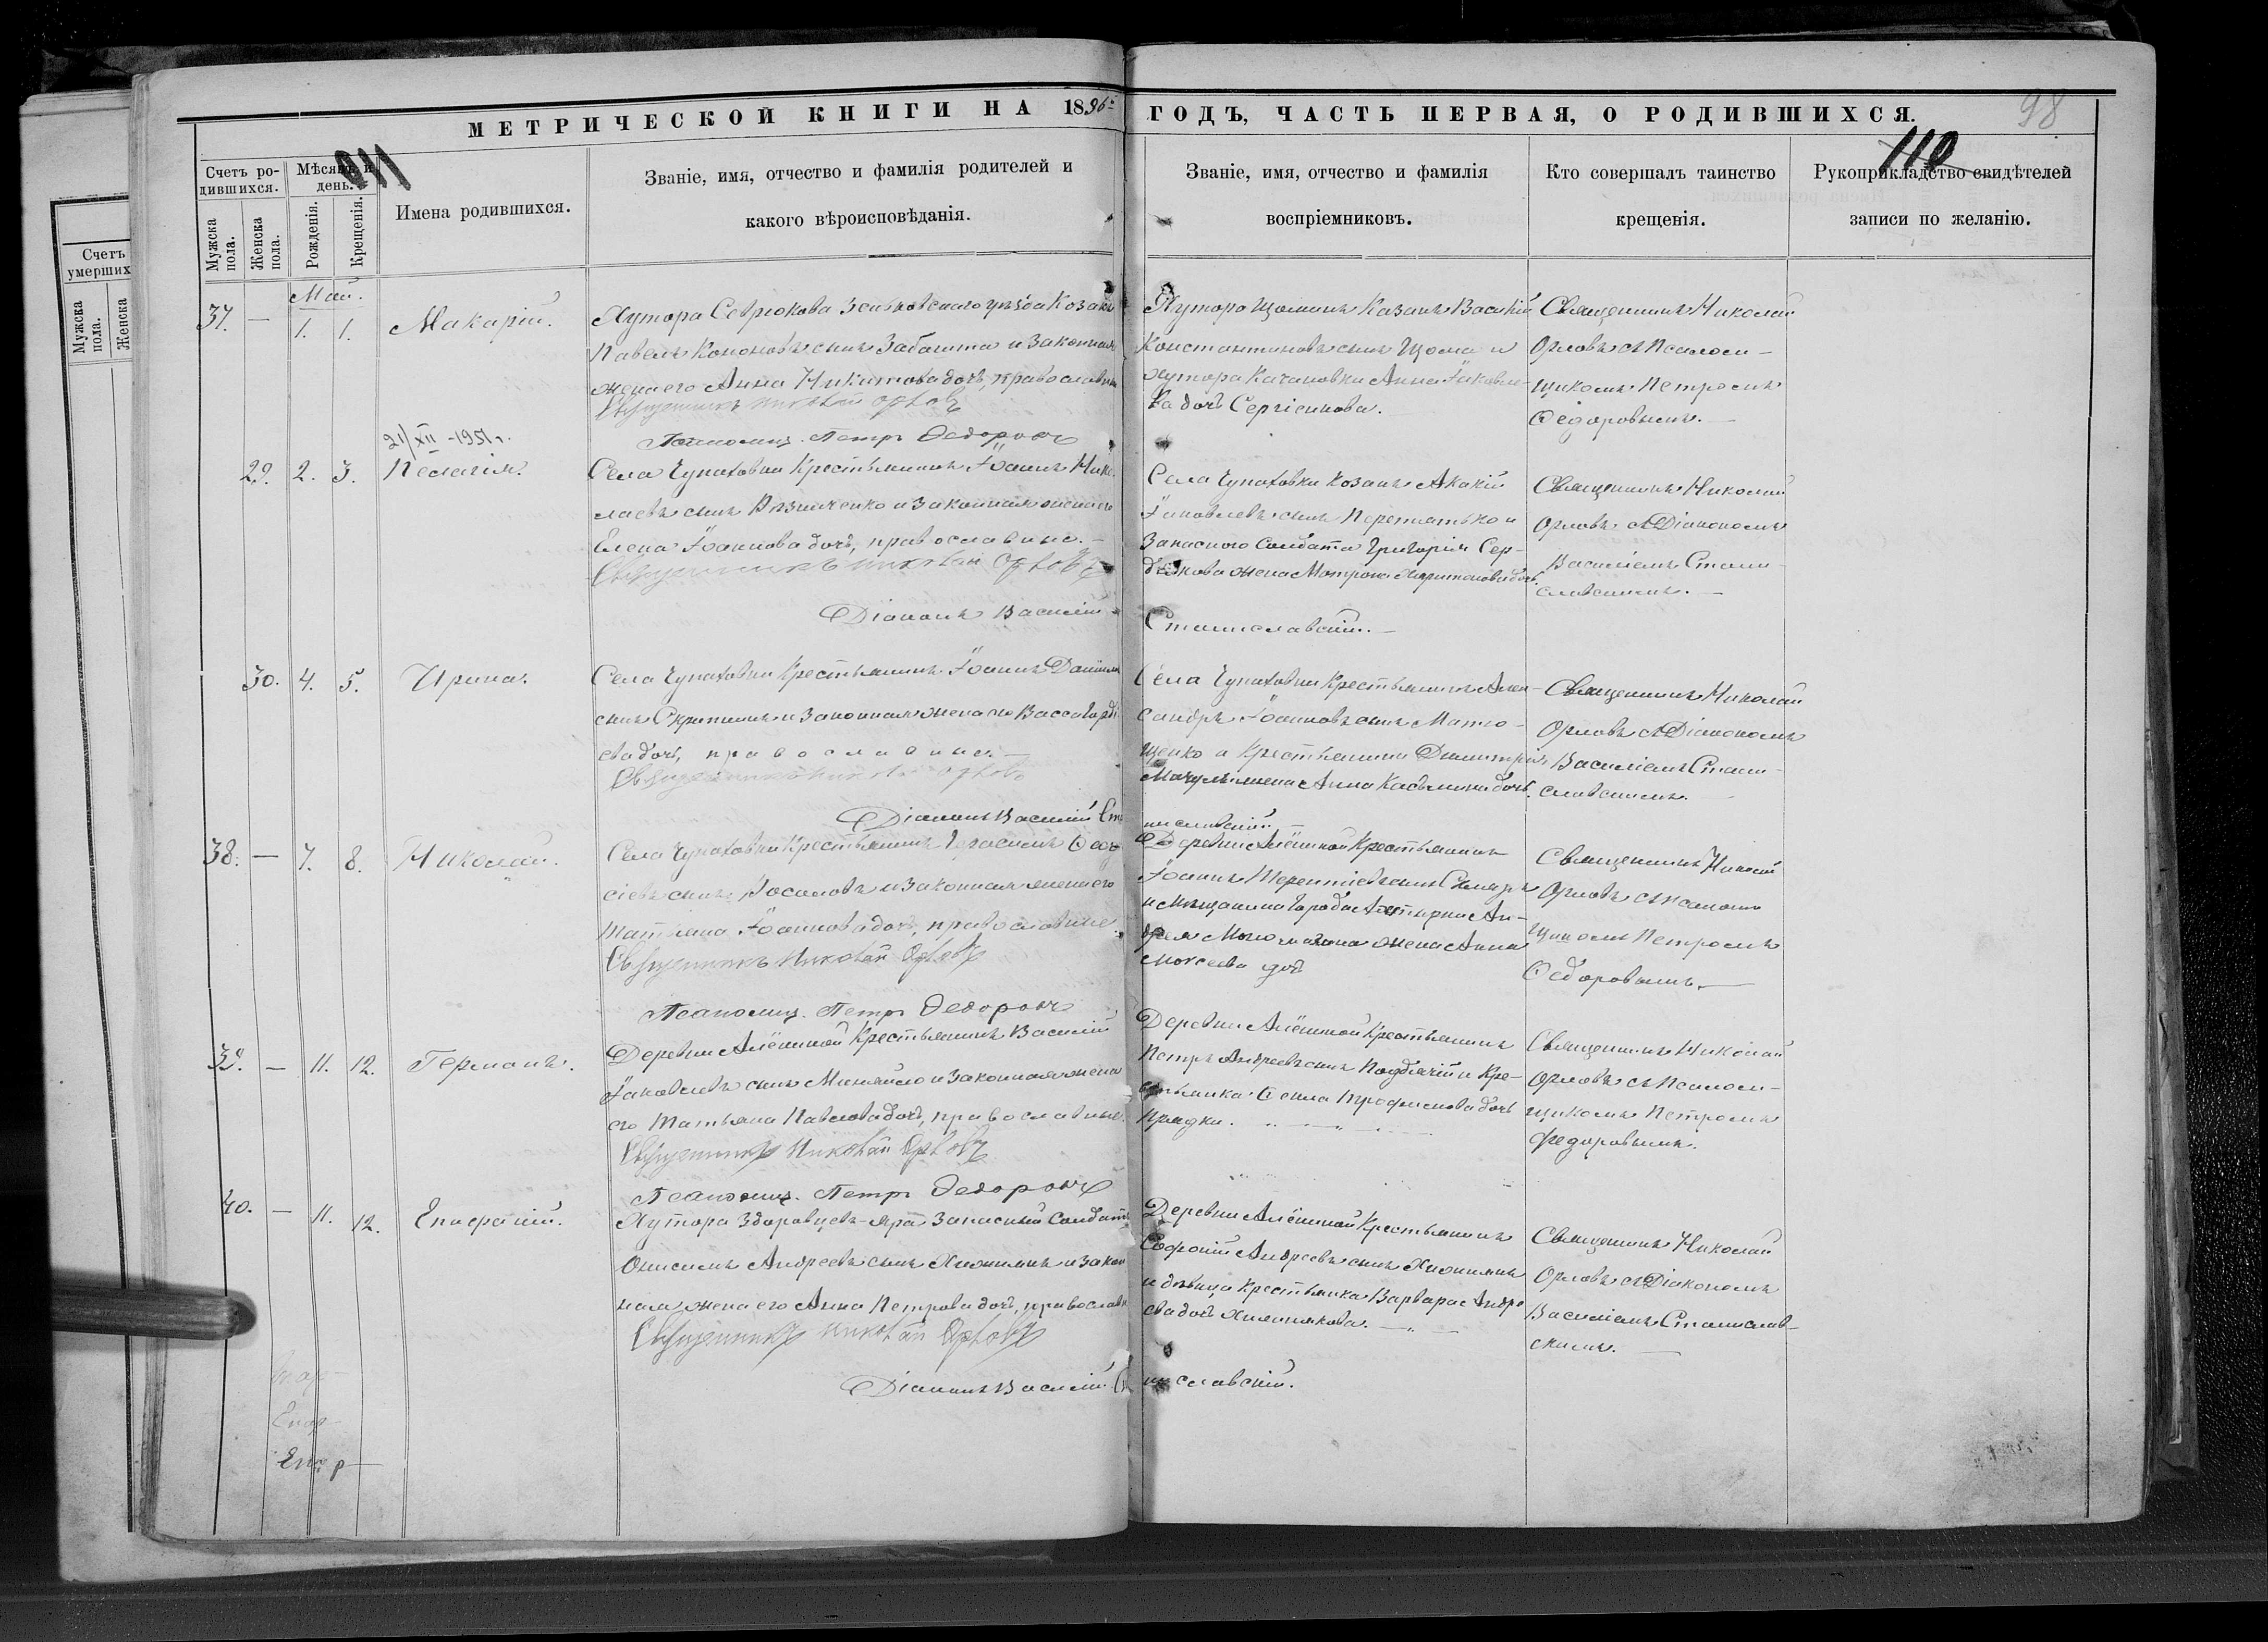 МЕТРИЧЕСКОЙ КНИГИ НА 1896
ГОДЪ, ЧАСТЬ ПЕРВАЯ, О РОДИВШИХСЯ.
98
110
Счетъ умерших
Мужска пола.
Женска
Счетъ родившихся.
Мѣсяцъ и день.
Мужска пола.
Женска пола.
Рожденія.
Крещенія.
Имена родившихся.
Званіе, имя, отчество и фамилія родителей и
какого вѣроисповѣданія.
Званіе, имя, отчество и фамилія
воспріемниковъ.
Кто совершалъ таинство
крещенія.
Рукоприкладство свидѣтелей
записи по желанію.
Май.
37. — 1. 1. Макарій.
Хутора Севрюкова Зеньковскаго уѣзда Козакъ
Павелъ Кононовъ сынъ Забашта и законная
жена его Анна Никитова дочь, православн
Священникъ Николай Орловъ
Псаломщ. Петръ Федоровъ
Хутора Казакъ Василій
Константиновъ сынъ и
хутора Качановки Анна Іаковле-
ва дочь Сергіенкова.
Священникъ Николай
Орловъ съ Псалом-
щикомъ Петромъ
Ѳедоровымъ. —
21/XII - 1951 г.
29. 2. 3. Пелагія.
Села Чупаховки Крестьянинъ Іоаннъ Нико
лаевъ сынъ и законная жена его
Елена Іоаннова дочь, православные. —
Священникъ Николай Орловъ
Діаконъ Василій
Станиславскій. —
Села Чупаховки Козакъ Акакій
Іаковлевъ сынъ Перетятько и
Запаснаго Солдата Григорія Сер-
дюкова жена Мотрона Харитонова дочь.
Священникъ Николай
Орловъ съ Діакономъ
Василіемъ Стани-
славскимъ. —
30. 4. 5. Ирина.
Села Чупаховки Крестьянинъ Іоаннъ Даніил
сынъ Скрипникъ и законная жена его Васса Горді
ева дочь, православные. —
Священникъ Николай Орловъ
Діаконъ Василій Ста
ниславскій —
Села Чупаховки Крестьянинъ Алек-
сандръ Іоанновъ сынъ Матю-
щенко и Крестьянина Димитрія
жена Анна Касьянова дочь.
Священникъ Николай
Орловъ съ Діакономъ
Василіемъ Стани-
славскимъ.
38. — 7. 8. Николай.
Села Чупаховки Крестьянинъ Герасимъ Ѳеодо
сіевъ сынъ и законная жена его
Татіана Іоаннова дочь, православные.
Священникъ Николай Орловъ
Псаломщ. Петръ Федоровъ
Деревни Алёшной Крестьянинъ
Іоаннъ Терентіевъ сынъ Скляръ
и мѣщанина города Ахтырки Ан-
дрея жена Анна
Моисеева доч
Священникъ Николай
Орловъ съ Псалом
щикомъ Петромъ
Ѳедоровымъ. —
39. — 11. 12. Германъ.
Деревни Алёшной Крестьянинъ Василій
Іаковлевъ сынъ и законная жена
его Татьяна Павлова дочь, православные.
Священникъ Николай Орловъ
Псаломщ. Петръ Федоровъ
Деревни Алёшной Крестьянинъ
Петръ Андреевъ сынъ и Кре-
стьянка Трофимова дочь
Прядки.
Священникъ Николай
Орловъ съ Псалом-
щикомъ Петромъ
Федоровымъ.
40. — 11. 12. Епифаній.
Хутора Здоровцевъ-Яръ Запасный Солдатъ
Онисимъ Андреевъ сынъ Хижнякъ и закон
ная жена его Анна Петрова дочь, православн
Священникъ Николай Орловъ
Діаконъ Василій Ста
ниславскій.
Деревни Алёшной Крестьянинъ
Софроній Андреевъ сынъ Хижнякъ
и дѣвица Крестьянка Варвара Андре
ева дочь Хижнякова. —
Священникъ Николай
Орловъ съ Діакономъ
Василіемъ Станислав-
скимъ. —